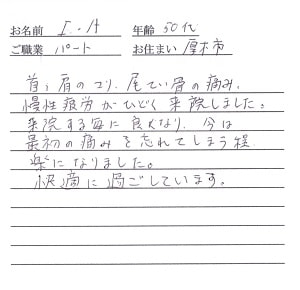 お名前 I.A 年齢 50代
ご職業 パート お住まい 厚木市
首、肩のコリ、尾てい骨の痛み、
慢性疲労がひどく来院しました。
来院する毎に良くなり、今は
最初の痛みを忘れてしまう程、
楽になりました。
快適に過ごしています。